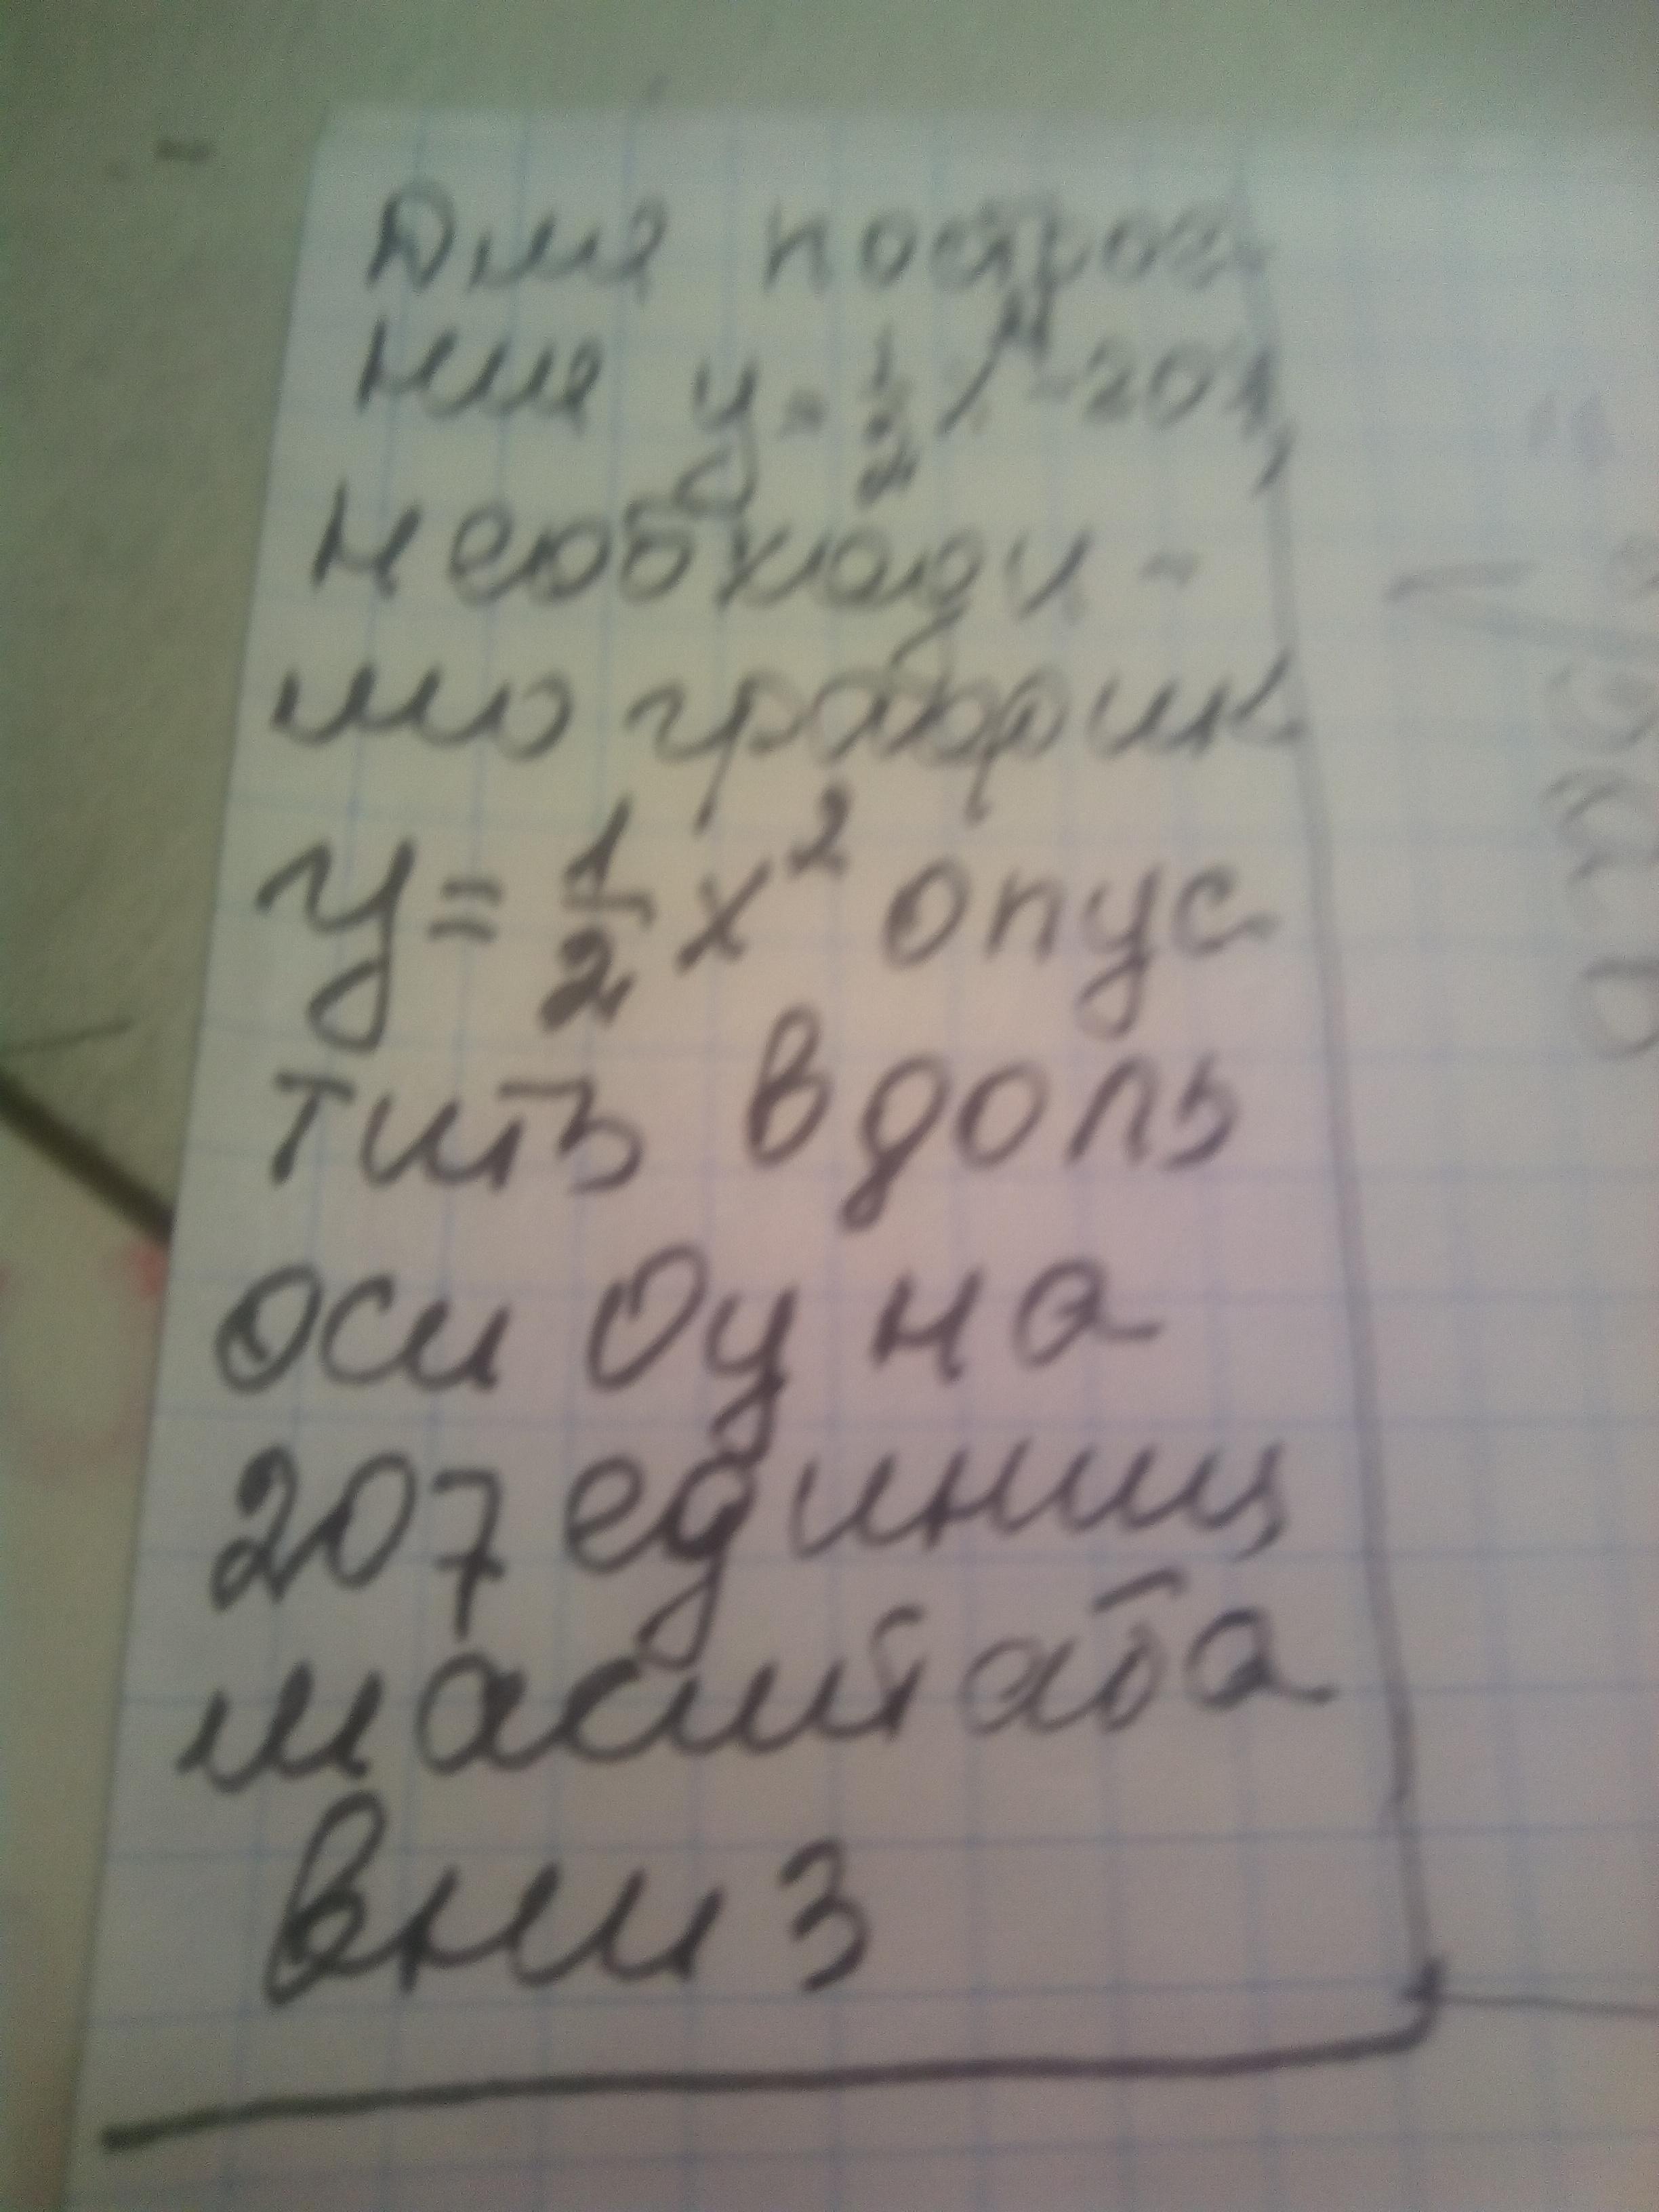 Для построе
ния y = 1/2 x² - 207,
необходи -
мо график
y = 1/2 x² опус
тить вдоль
оси Oy на
207 единиц
масштаба
вниз